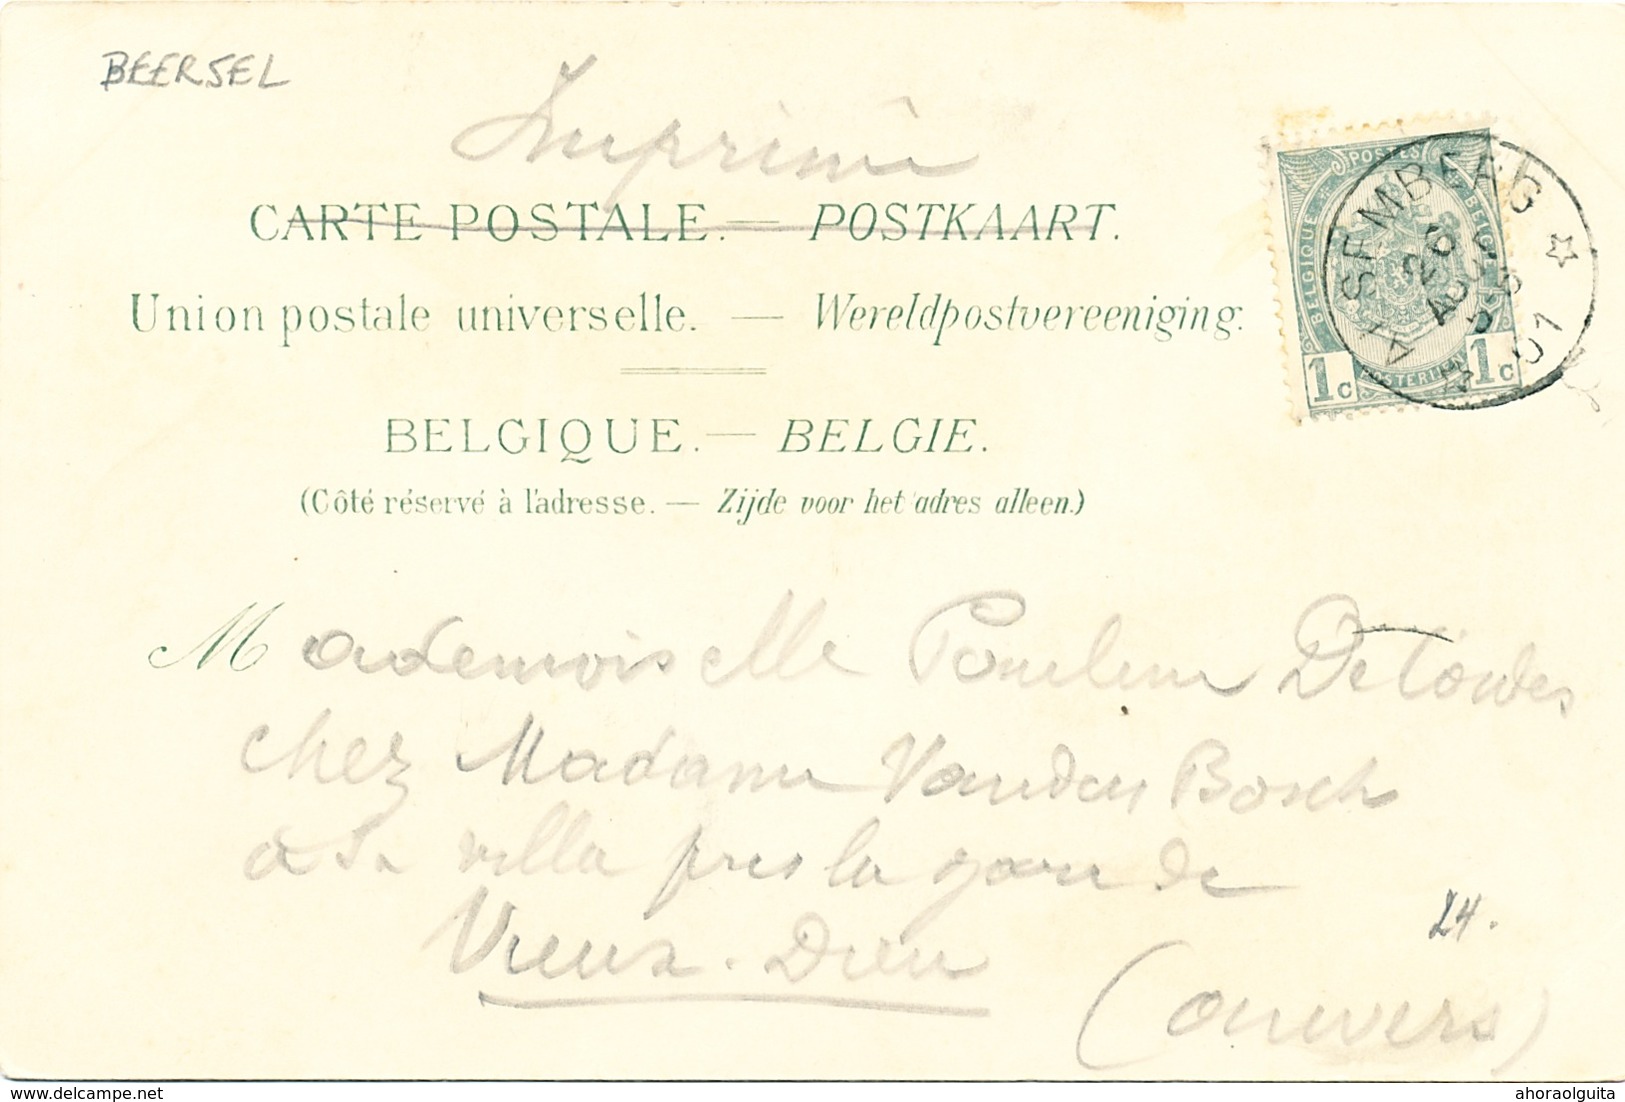 BEERSEL
Imprimé
CARTE POSTALE. — POSTKAART.
Union postale universelle. — Wereldpostvereeniging.
BELGIQUE. — BELGIE.
(Côté réservé à l'adresse. — Zijde voor het adres alleen.)
POSTES
BELGIQUE
BELGIE
POSTERIJEN
1c 1c
ALSEMBERG
26
AOUT
01
Mademoiselle
chez Madame Vanden Bosch
à sa villa près la gare de
Vieux-Dieu
24.
(Anvers)
delcampe.net
ahoraolguita